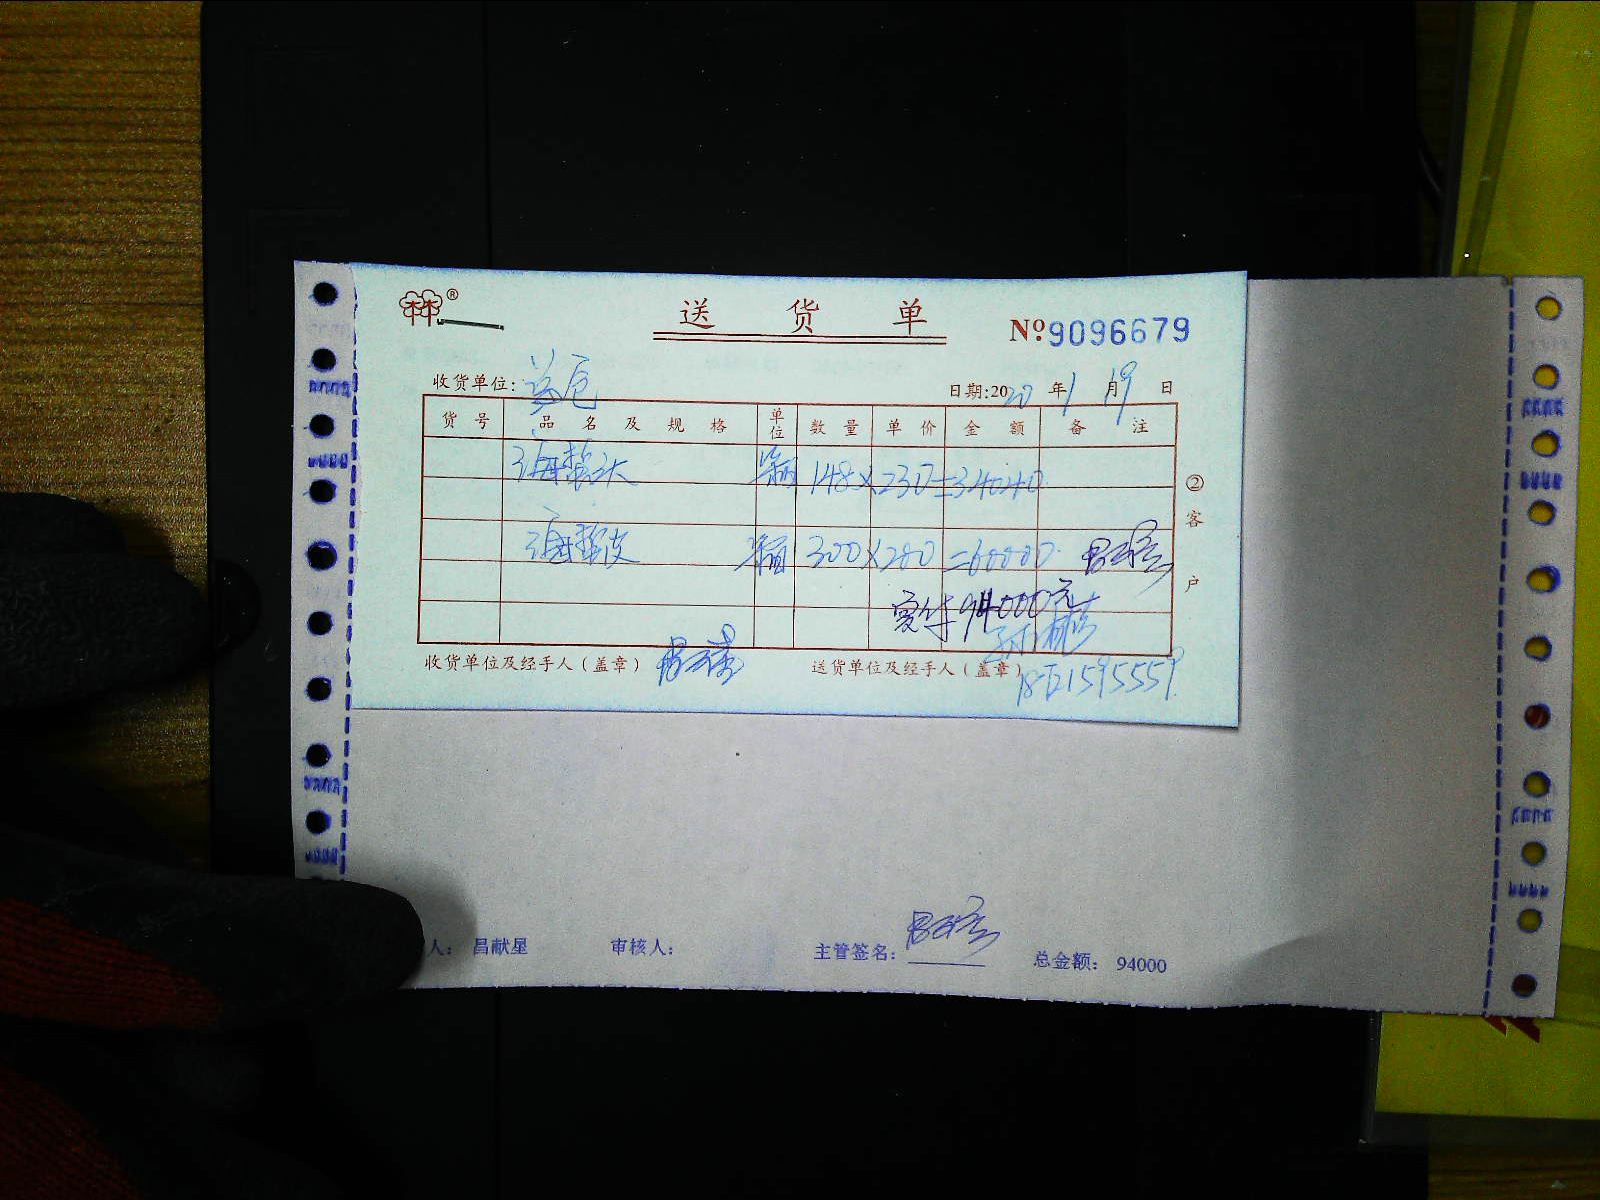 送 货 单
№ 9096679
收货单位: 日期:2020 年 1 月 19 日
货 号 品 名 及 规 格 单位 数 量 单 价 金 额 备 注
海蜇头 箱 148×230=34040
海蜇皮 箱 300×200=60000
实付94000元
②客户
收货单位及经手人(盖章) 送货单位及经手人(盖章)
人: 昌献星 审核人: 主管签名: 总金额: 94000